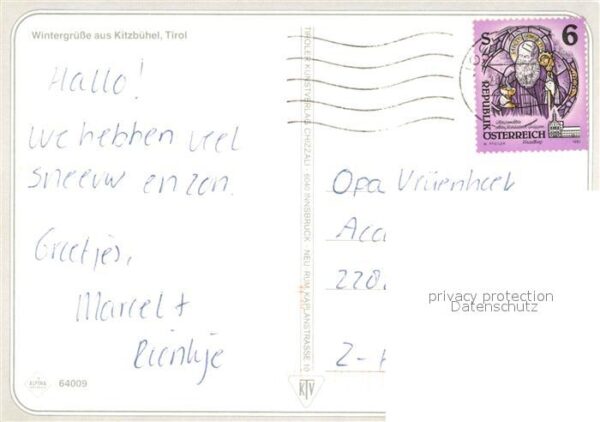 Wintergrüße aus Kitzbühel, Tirol
Hallo!
We hebben veel
sneeuw en zon.
Groetjes,
Marcel +
64009
TIROLER KUNSTVERLAG CHIZZALI · 6040 INNSBRUCK · NEU-RUM, KAPLANSTRASSE 10
KTV
S 6
REPUBLIK
ÖSTERREICH
Opa
220
2-H
privacy protection
Datenschutz